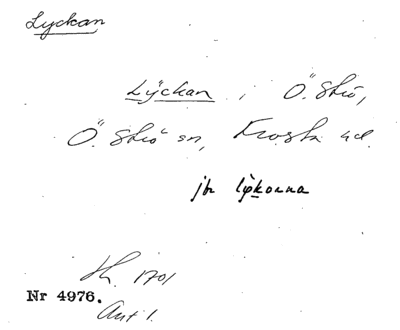 Lyckan
Lyckan i Ö. Strö,
Ö. Strö sn, Frosta hd.
jfr lykorna
Hh. 1701
Nr 4976.
Avt 1.